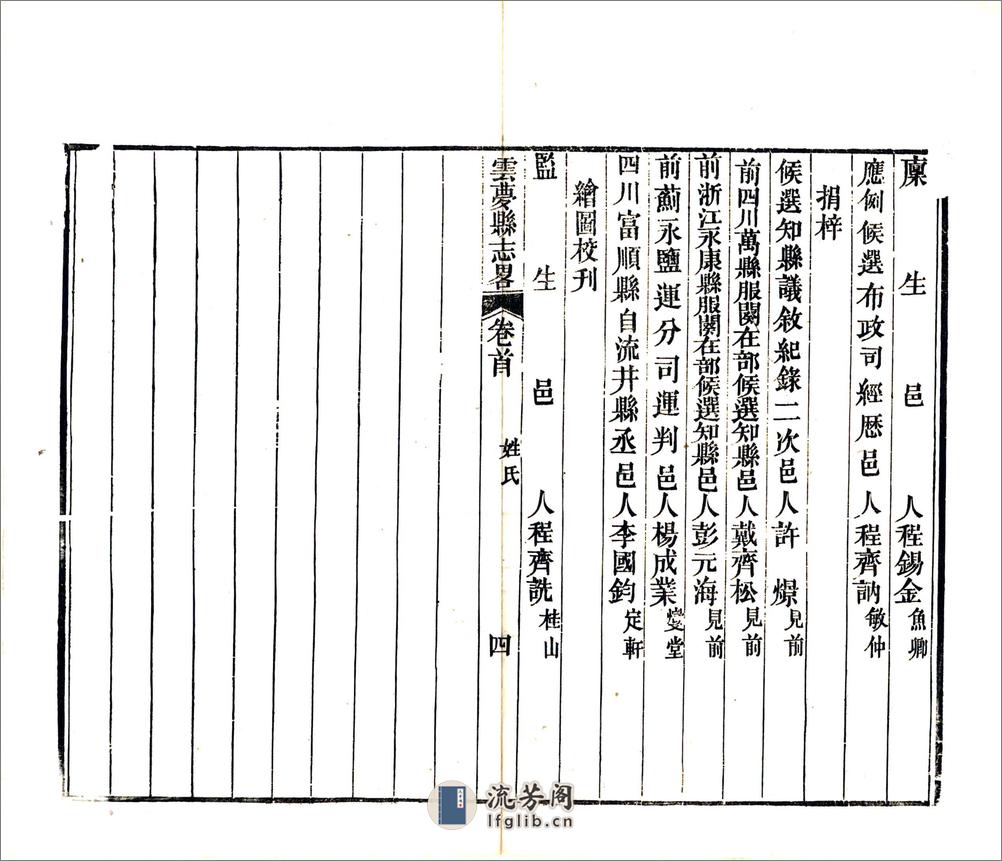 廪生邑人程錫金魚卿
應例候選布政司經歷邑人程齊訥敏仲
捐梓
候選知縣議敘紀錄二次邑人許㬌見前
前四川萬縣服闋在部候選知縣邑人戴齊松見前
前浙江永康縣服闋在部候選知縣邑人彭元海見前
前薊永鹽運分司運判邑人楊成業燮堂
四川富順縣自流井縣丞邑人李國鈞定軒
繪圖校刊
監生邑人程齊詵桂山
雲夢縣志畧 卷首 姓氏 四
流芳阁
lfglib.cn